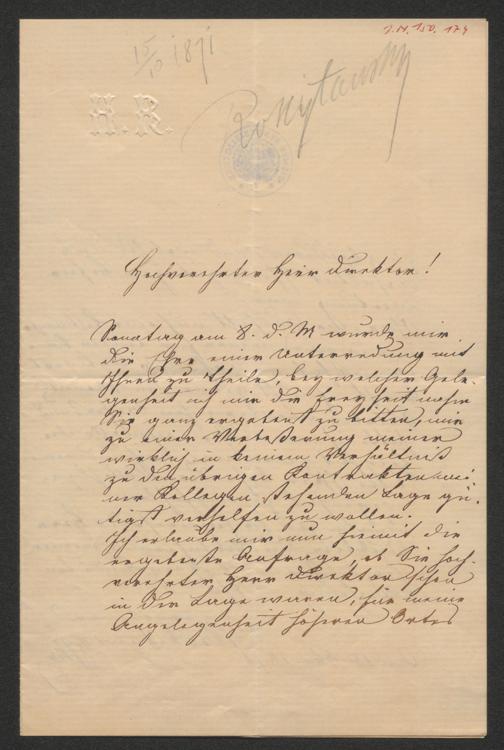 I.N. 150.174
15/10 1871
Rokitansky
Hochverehrter Herr Direktor!
Sonntag am 8. d. M wurde mir
die Ehre einer Unterredung mit
Ihnen zu Theile, bey welcher Gele-
genheit ich mir die Freyheit nahm
Sie ganz ergebenst zu bitten, mir
zu einer Verbeßerung meiner
wirklich in keinem Verhältniß
zu den übrigen Kontrakten mei-
ner Kollegen stehenden Lage gü-
tigst verhelfen zu wollen.
Ich erlaube mir nun hiemit die
ergebenste Anfrage, ob Sie hoch-
verehrter Herr Direktor schon
in der Lage waren, für meine
Angelegenheit höheren Ortes